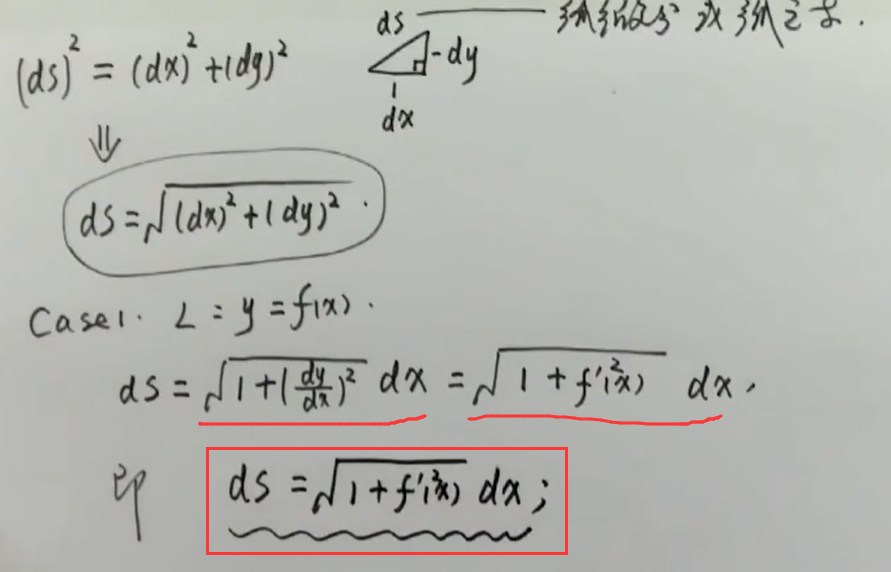 ds
(ds)² = (dx)² + (dy)²
dy
dx
⇓
ds = √((dx)² + (dy)²) .
Case1. L : y = f(x) .
ds = √(1 + (dy/dx)²) dx = √(1 + f'²(x)) dx .
即 ds = √(1 + f'²(x)) dx ;